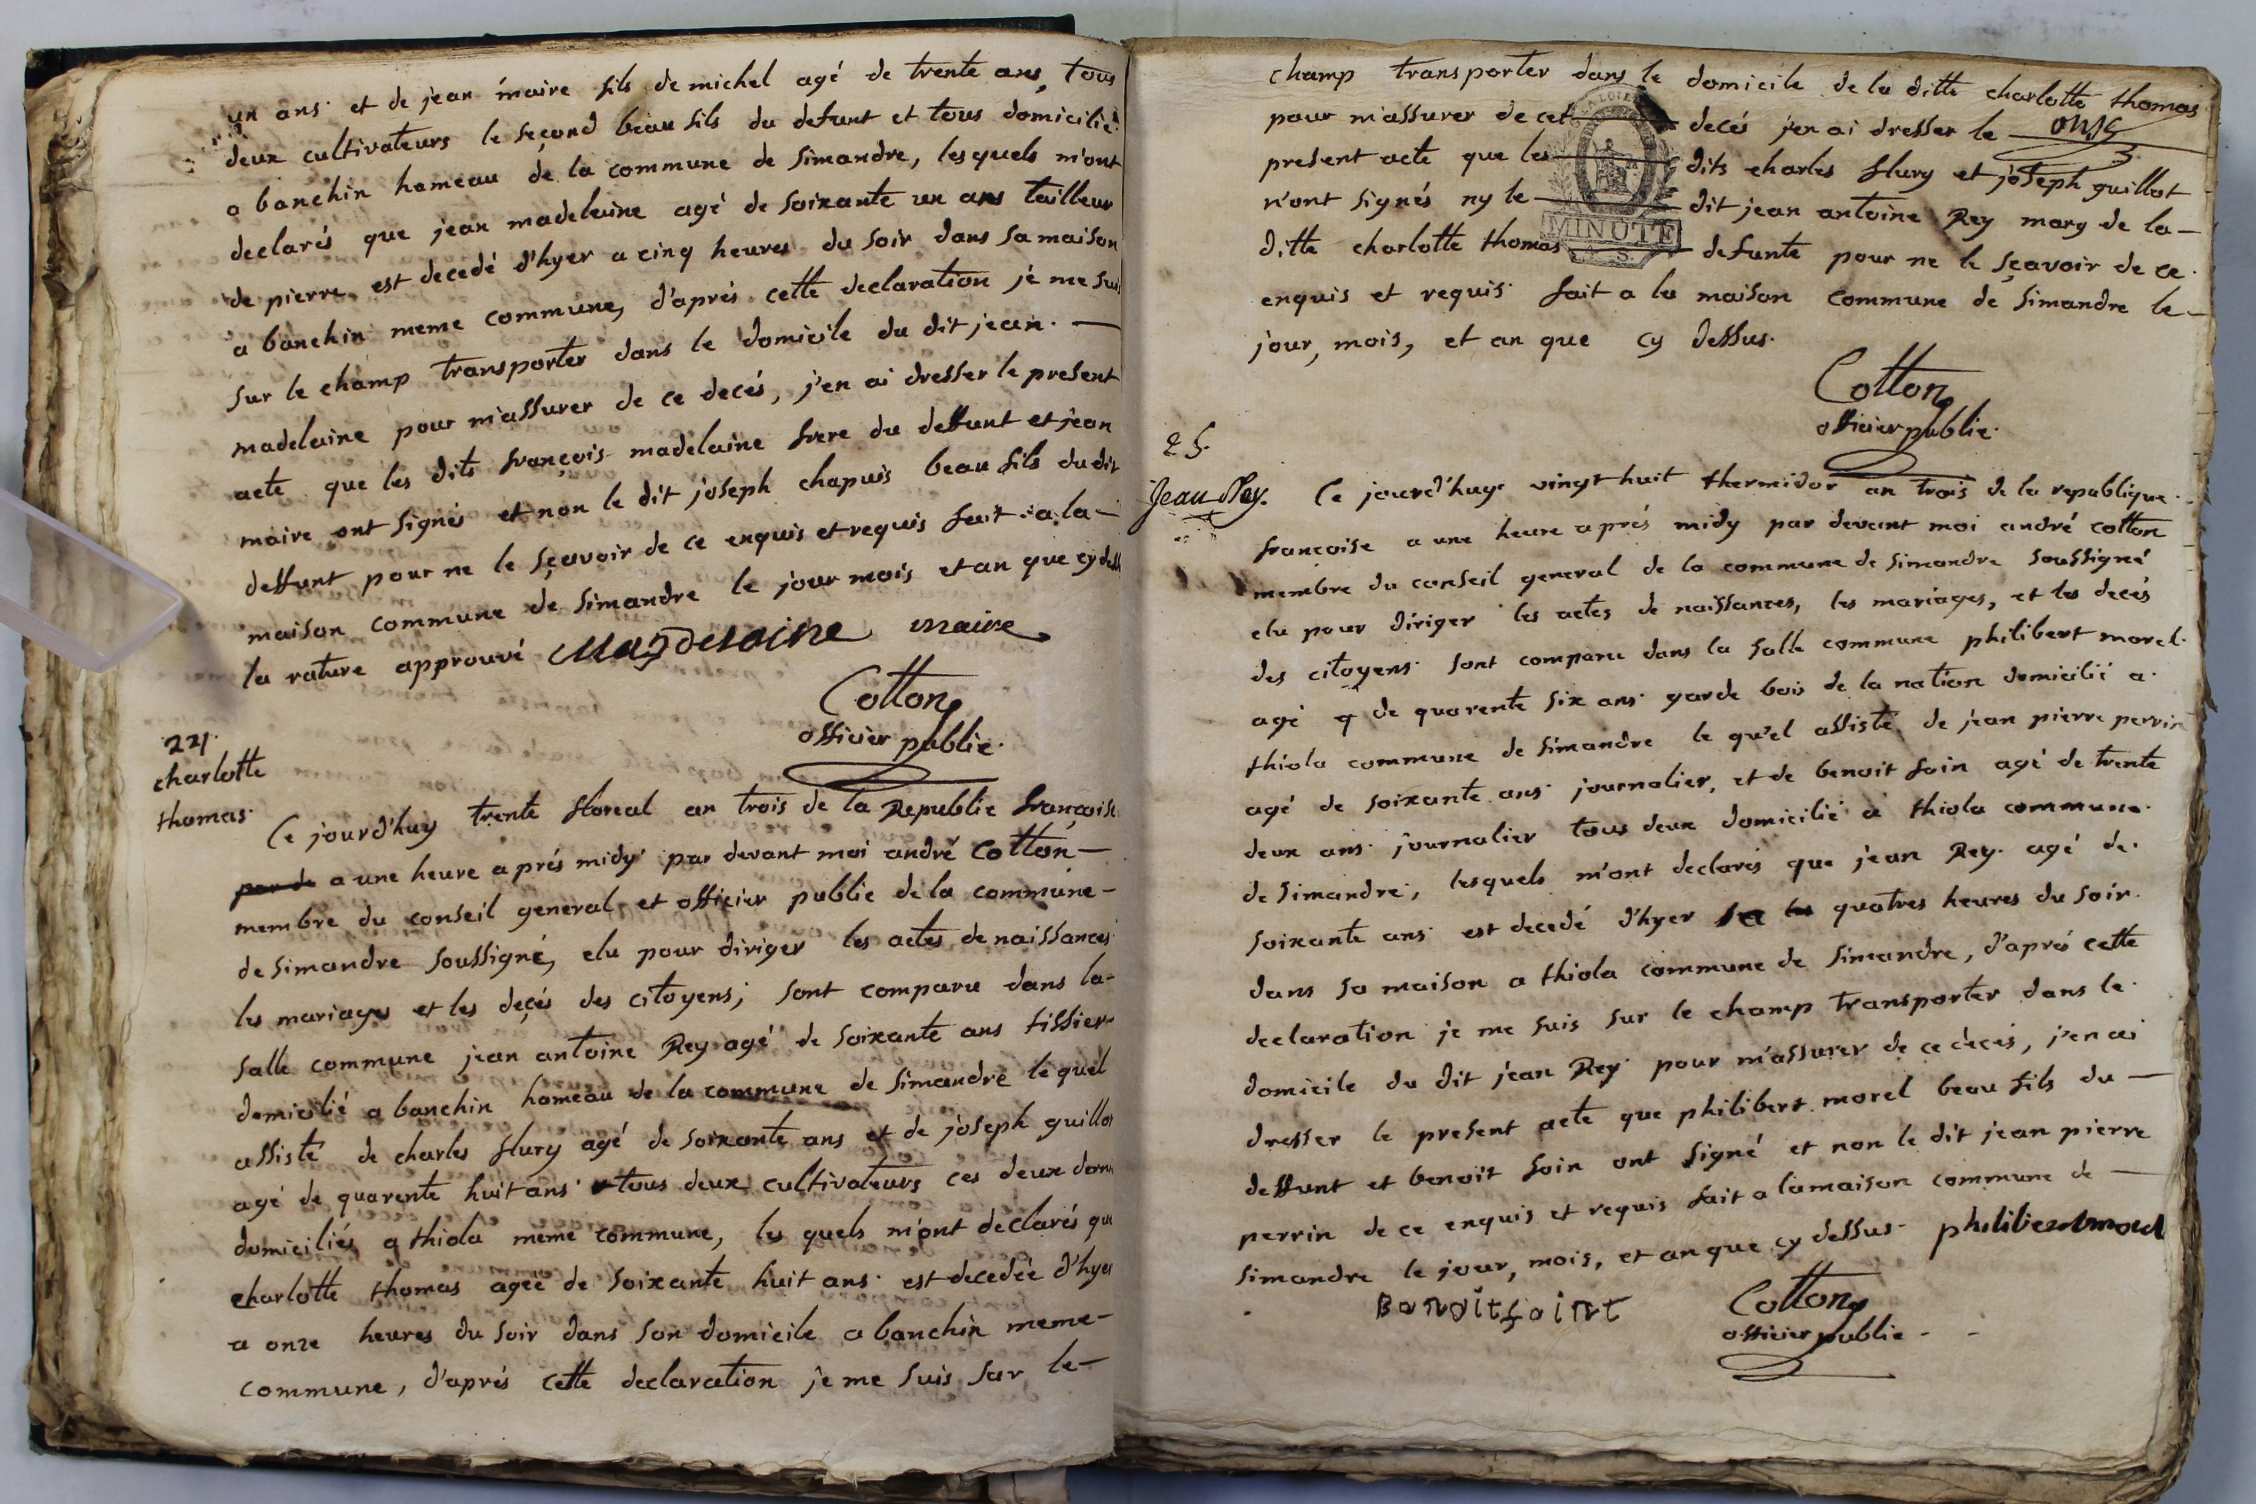 un ans. et de jean maire fils de michel agé de trente ans, tous
deux cultivateurs le second beau fils du defunt et tous domicilié
a banchin hameau de la commune de Simandre, lesquels m'ont
declarés que jean madelaine agé de soixante un ans tailleur
de pierre est decedé d'hyer a cinq heures du soir dans sa maison
a banchin meme commune, d'aprés cette declaration je me suis
sur le champ transporter dans le domicile du dit jean. —
madelaine pour m'assurer de ce decés, j'en ai dresser le present
acte que les dits françois madelaine frere du deffunt et jean
maire ont signés et non le dit joseph chapuis beau fils du dit
deffunt pour ne le sçavoir de ce enquis et requis fait a la —
maison commune de Simandre le jour mois et an que cy dess
la rature approuvé Magdelaine maire
Cotton
officier public.
221.
charlotte
thomas.
Ce jourd'huy trente floreal an trois de la Republic françoise
par de a une heure aprés midy par devant moi andré Cotton —
membre du conseil general et officier public de la commune —
de Simandre soussigné, elu pour diriger les actes de naissances
les mariages et les deçés des citoyens; sont comparu dans la-
salle commune jean antoine Rey agé de soixante ans tissier
domicilié a banchin hameau de la commune de Simandre lequel
assisté de charles flury agé de soixante ans et de joseph guillot
agé de quarente huit ans tous deux cultivateurs ces deux dern
domiciliés a thiola meme commune, les quels m'ont declarés que
charlotte thomas agée de soixante huit ans. est decedée d'hyer
a onze heures du soir dans son domicile a banchin meme-
commune, d'aprés cette declaration je me suis sur le —
champ transporter dans le domicile de la ditte charlotte thomas
pour m'assurer de cet decés j'en ai dresser le
present acte que les dits charles flury et joseph guillot
n'ont signés ny le dit jean antoine Rey mary de la —
ditte charlotte thomas defunte pour ne le sçavoir de ce
enquis et requis. fait a la maison commune de Simandre le —
jour, mois, et an que cy dessus.
MINUTE
Cotton
officier public.
25.
Jean Rey.
Ce jourd'huy vingt huit thermidor an trois de la republique
françoise a une heure aprés midy par devant moi andré cotton
membre du conseil general de la commune de Simandre soussigné
elu pour diriger les actes de naissances, les mariages, et les decés
des citoyens. sont comparu dans la salle commune philibert morel.
agé de quarente six ans. garde bois de la nation domicilié a
thiola commune de Simandre le qu'el assisté de jean pierre perrin
agé de soixante ans journalier, et de benoit foin agé de trente
deux ans. journalier tous deux domicilié a thiola commune.
de Simandre, lesquels m'ont declarés que jean Rey. agé de.
soixante ans. est decedé d'hyer quatres heures du soir.
dans sa maison a thiola commune de Simandre, d'aprés cette
declaration je me suis sur le champ transporter dans le.
domicile du dit jean Rey. pour m'assurer de ce decés, j'en ai
dresser le present acte que philibert morel beau fils du —
deffunt et benoit foin ont signé et non le dit jean pierre
perrin de ce enquis et requis fait a la maison commune de —
Simandre le jour, mois, et an que cy dessus. philibert morel
Cotton
officier public